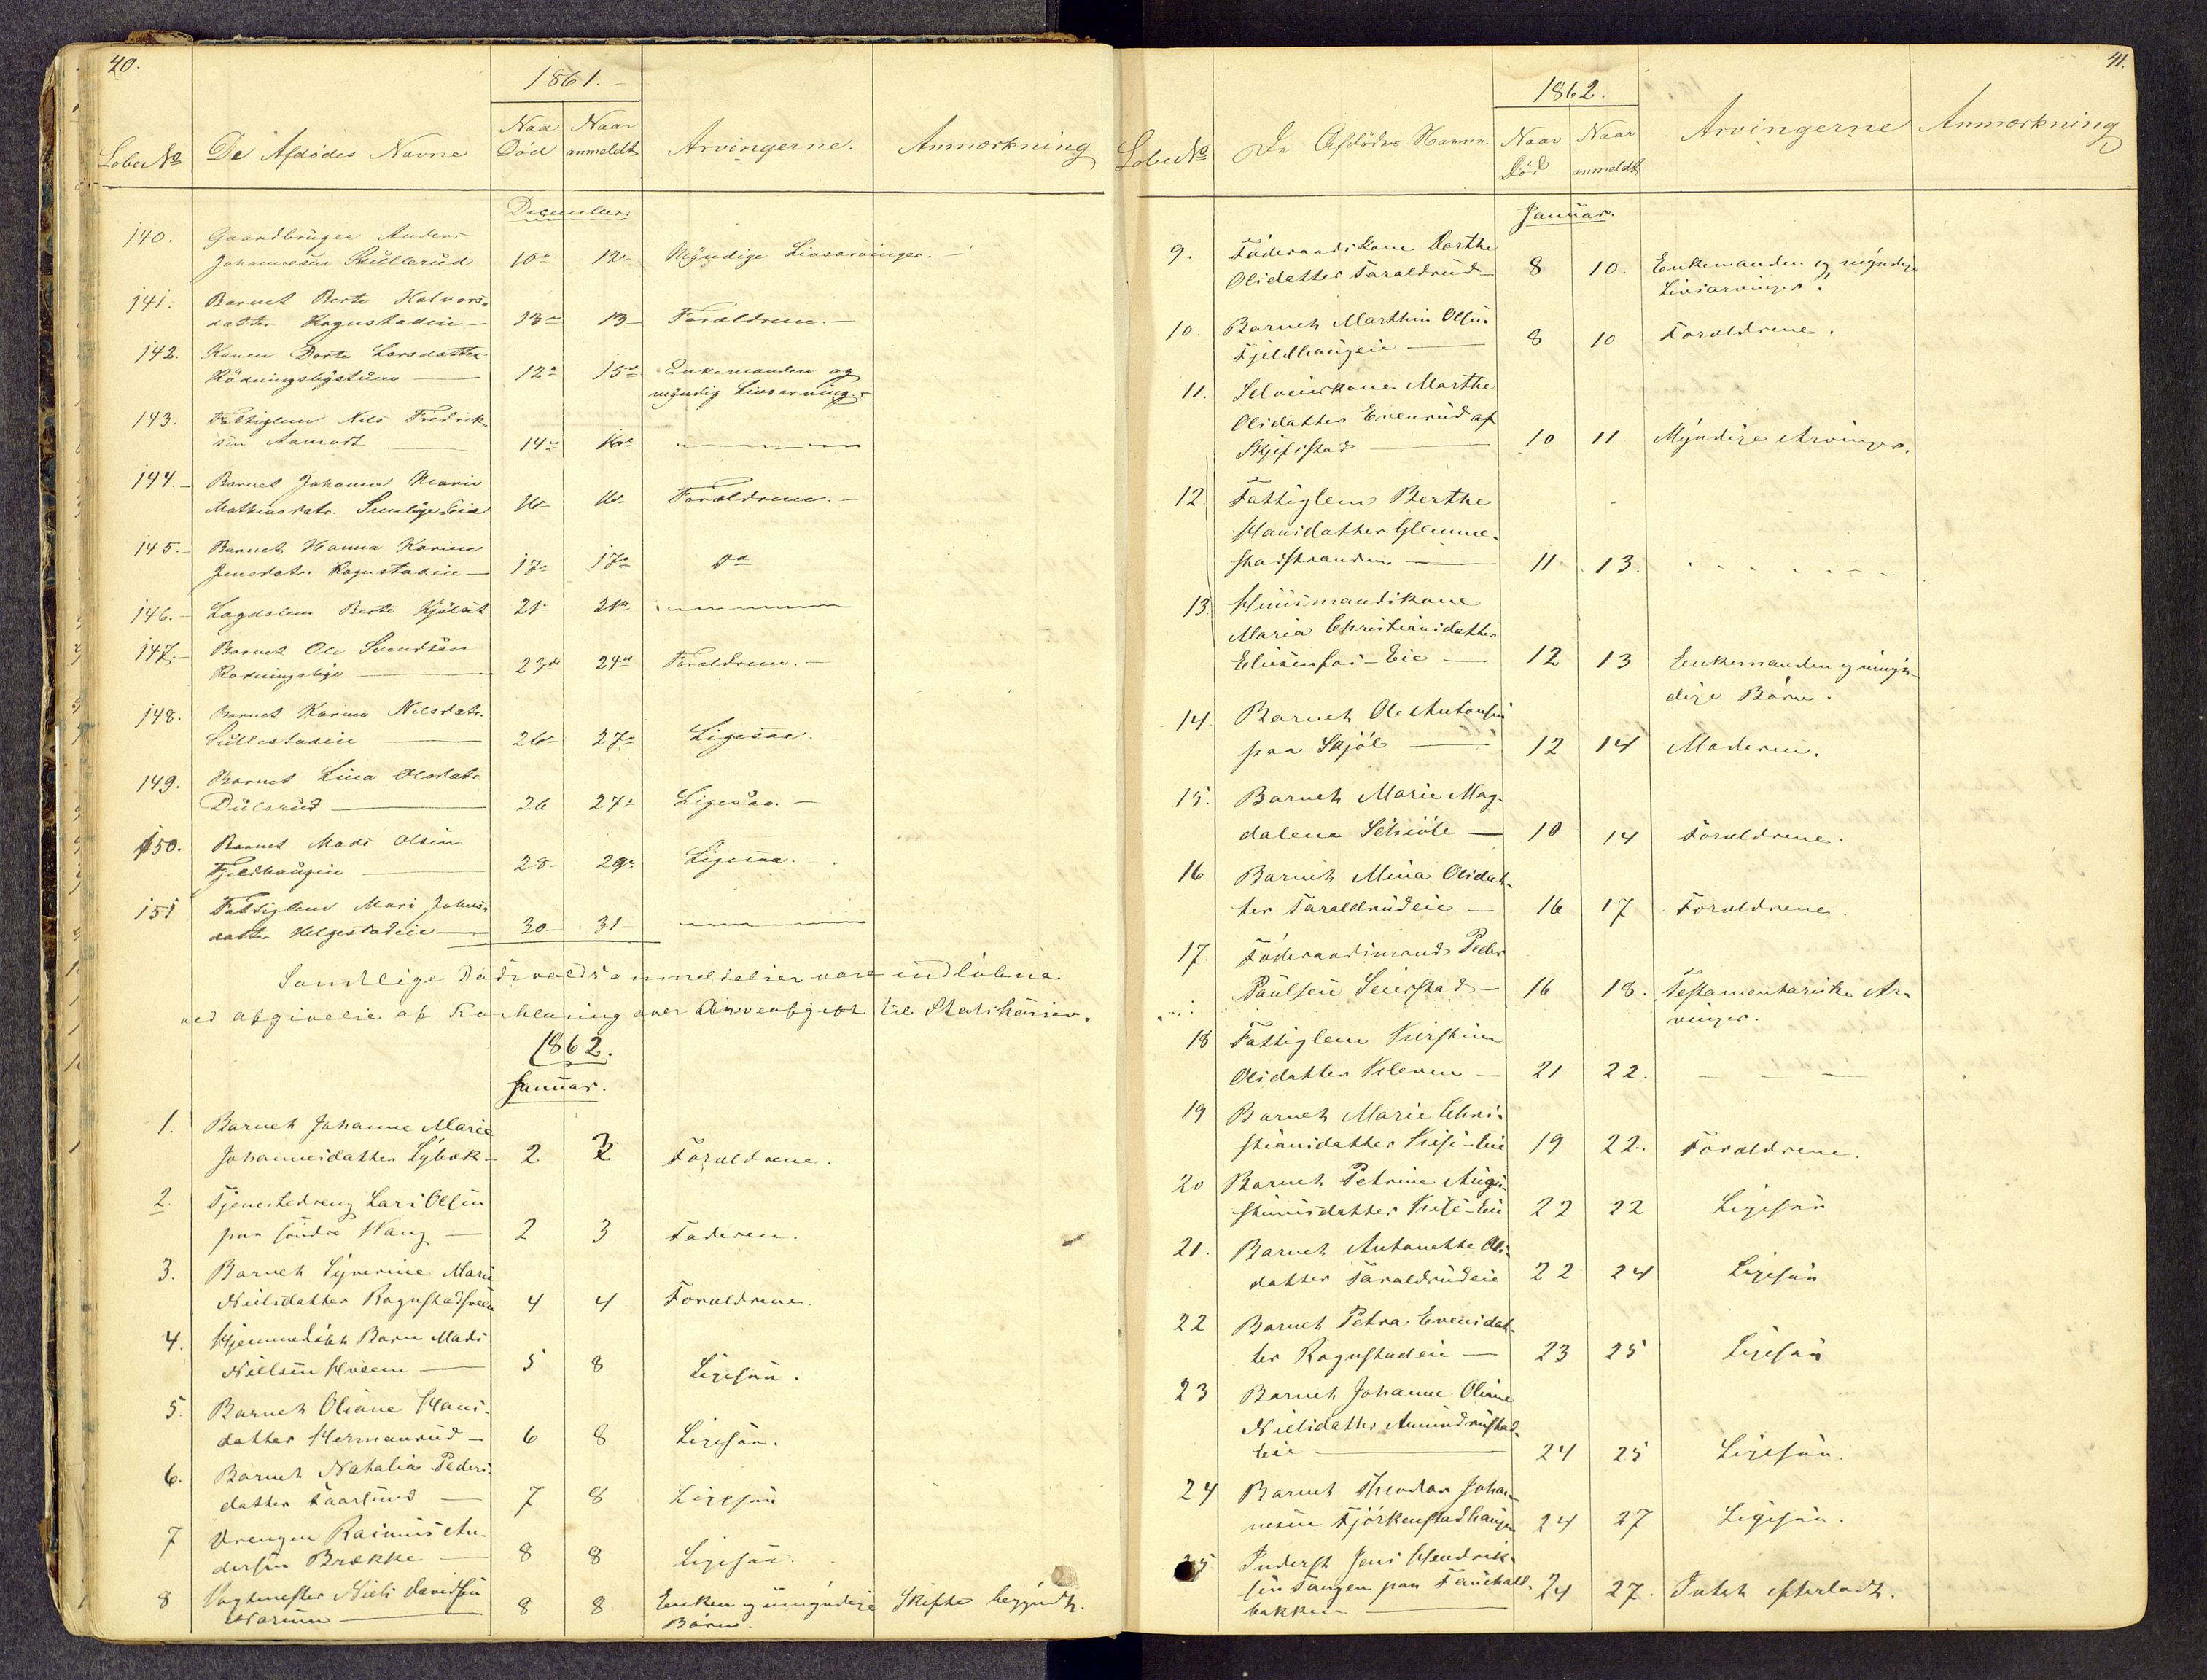 40.
1861.
Løbe No De Afdødes Navne Naar Død Naar anmeldt Arvingerne. Anmærkning
December.
140. Gaardbruger Anders
Johannesen Skullerud 10 12 Myndige Livsarvinger.
141. Barnet Berte Halvors-
datter Rognstadeie 13 13 Forældrene.
142. Konen Dorte Larsdatter
12 15 Enkemanden og
myndig Livsarving.
143. Fattiglem Nils Fredrik-
sen Aamodt 14 16
144. Barnet Johanne Marie
Mathiasdatr. 16 16 Forældrene.
145. Barnet Hanna Karine
Jensdatr. Rognstadeie 17 17 do
146. Lægdslem Berte Kjølset 21 21
147. Barnet Ole Svendsen
23de 24de Forældrene.
148. Barnet Karine Nilsdatr.
Sullestadeie 26 27 Ligesaa.
149. Barnet Lina Olsdatr.
Dulsrud 26 27 Ligesaa.
150. Barnet Mads Olsen
Fjeldhaugeie 28 29 Ligesaa.
151 Fattiglem Mari Johns-
datter Helgestadeie 30 31
Samtlige Dødsfaldsanmeldelser vare indløbne
ved Afgivelse af Forklaring over Arveafgift til Statskassen.
1862.
Januar.
1. Barnet Johanne Marie
Johannesdatter Lybæk 2 3 Forældrene.
2. Tjenestedreng Lars Olsen
paa søndre Vang 2 3 Faderen.
3. Barnet Syverine Marie
Nielsdatter 4 4 Forældrene.
4. Hjemmedøbt Barn Mads
Nielsen 5 8 Ligesaa.
5. Barnet Oliane Hans-
datter Hermanrud 6 8 Ligesaa.
6. Barnet Nathalia Peders-
datter Faarlund 7 8 Ligesaa
7 Drengen Rasmus An-
dersen Brække 8 8 Ligesaa.
8 Vagtmester Niels Davidsen
8 8 Enken og umyndige Skifte begyndt.
Børn.
41.
1862.
Løbe No De Afdødes Navne. Naar Død Naar anmeldt Arvingerne Anmærkning
Januar.
9. Føderaadskone Marthe
Olsdatter Taraldrud 8 10. Enkemanden og myndige
Livsarvinger.
10. Barnet Marthin Olsen
Fjeldhaugeie 8 10 Forældrene.
11. Selveierkone Marthe
Olsdatter Evenrud af
Skjefstad 10 11 Myndige Arvinger.
12. Fattiglem Berthe
Hansdatter Glemme-
stadstranden 11 13.
13. Huusmandskone
Maria Christiansdatter
Eie 12 13 Enkemanden og myn-
dige Børn.
14 Barnet Ole Antonsen
paa Skjøl 12 14 Moderen.
15. Barnet Marie Mag-
dalena 10 14 Forældrene.
16 Barnet Mina Olsdat-
ter Taraldrudeie 16 17 Forældrene.
17. Føderaadsmand Peder
Paulsen Seierstad 16 18. Testamentariske Ar-
vinger.
18 Fattiglem Kirstine
Olsdatter Kleven 21 22.
19 Barnet Marie Chri-
stiansdatter Kise-Eie 19 22. Forældrene.
20 Barnet Petrine Augu-
stinusdatter Kise-Eie 22 22 Ligesaa
21. Barnet Antonette Ols-
datter Taraldrudeie 22 24 Ligesaa
22 Barnet Petra Evensdat-
ter Rognstadeie 23 25 Ligesaa
23 Barnet Johanne Oliane
Nielsdatter Amundrustad-
Eie 24 25 Ligesaa.
24 Barnet Theodor Johan-
nesen Fjørkenstadhaugen 24 27 Ligesaa.
25 Inderst Jens Hendrik-
sen Tangen paa
bakken 24 27. Intet efterladt.